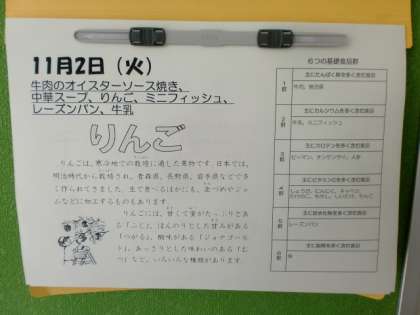 11月2日（火）
牛肉のオイスターソース焼き、
中華スープ、りんご、ミニフィッシュ、
レーズンパン、牛乳
りんご
りんごは、寒冷地での栽培に適した果物です。日本では、
明治時代から栽培され、青森県、長野県、岩手県などで多
く作られてきました。生で食べるほかにも、缶づめやジャ
ムなどに加工するものもあります。
りんごには、甘くて果汁たっぷりであ
る「ふじ」、ほんのりとした甘みがある
「つがる」、酸味がある「ジョナゴール
ド」、あっさりとした味わいのある「む
つ」など、いろんな種類があります。
6つの基礎食品群
主にたんぱく質を多く含む食品
1群
牛肉、
主にカルシウムを多く含む食品
2群
牛乳、ミニフィッシュ
主にカロテンを多く含む食品
3群
ピーマン、チンゲンサイ、人参
主にビタミンCを多く含む食品
4群
しょうが、にんにく、キャベツ、
主に炭水化物を多く含む食品
5群
レーズンパン
主に脂肪を多く含む食品
6群
油